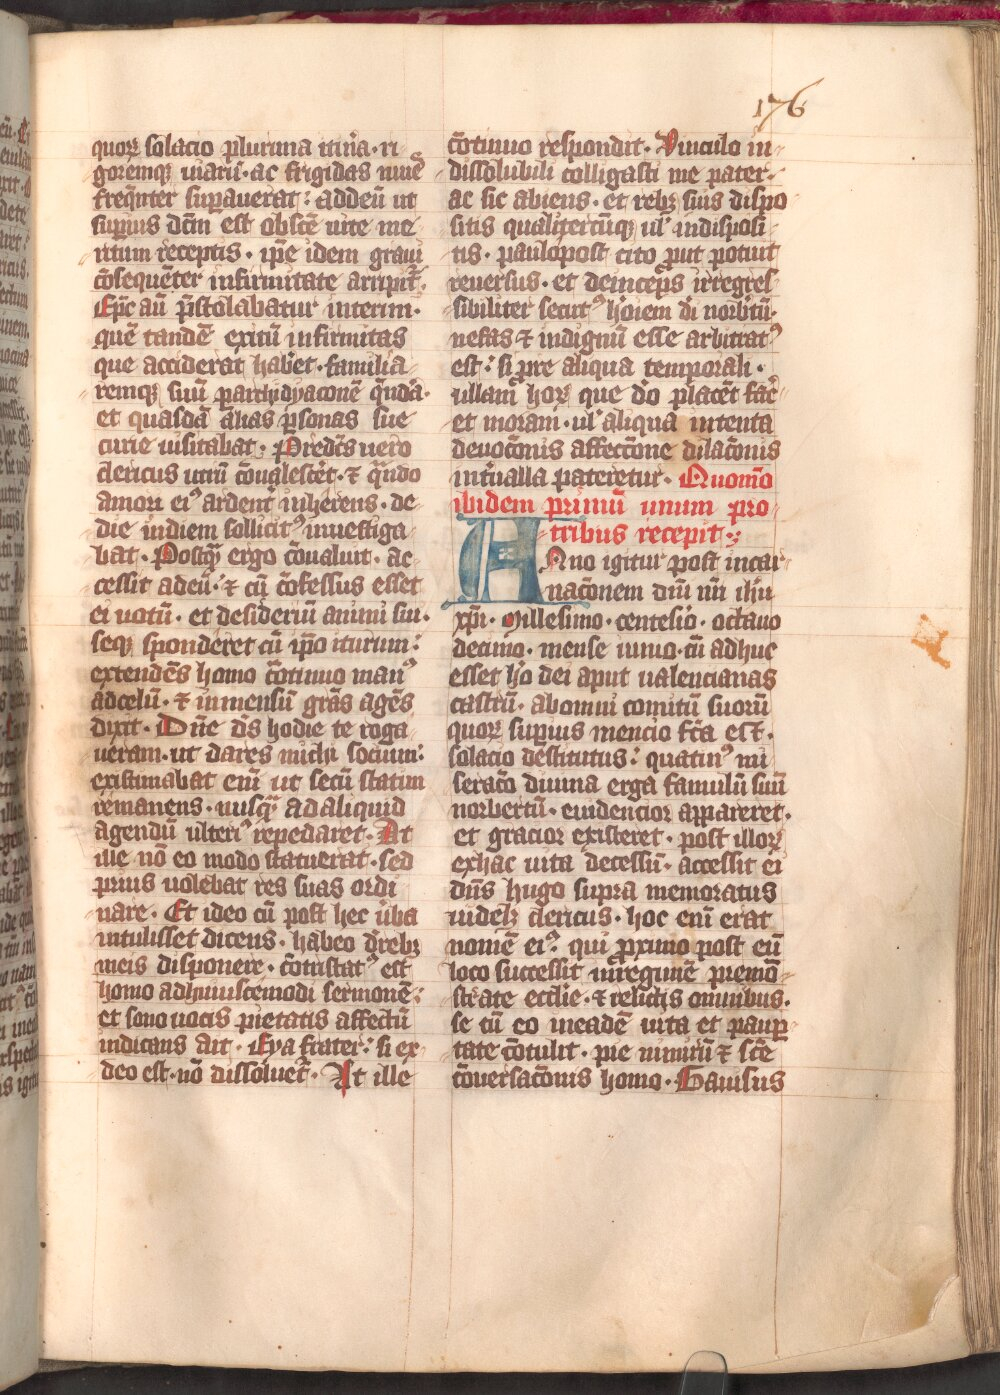 176
quoꝝ solacio plurima itin̄a · ri
goremqꝫ uiarū · ac frigidas niue
freq̄nter supauerat : addeū ut
supius dc̄m est obsc̄n uite me
ritum receptis · ipe idem graui
cōsequēter infirmitate arripit̄ ·
Ep̄c aū p̄stolabatur interim ·
quē tandē exitū infirmitas
que acciderat habet · familia
remqꝫ suū parchidyaconē quēdā ·
et quasdā alias psonas sue
curie uisitabat · Predcūs uero
clericus utitū cōualescēt · ⁊ quādo
amori eiꝰ ardent̄ inherens · de
die indiem sollicitꝰ inuestiga
bat · Postqꝫ ergo cōualuit · ac
cessit adeū · ⁊ cū cōfessus esset
ei uotū · et desideriū animi sui ·
seqꝫ sponderet cū ipō iturum :
extendēs homo cōtinuo manꝰ
adcelū · ⁊ inmensū gras agēs
dixit · Dn̄e ds̄ hodie te roga
ueram · ut dares michi socium :
existimabat enī ut secū statim
remanens · nusqꝫ adaliquid
agendū ulteriꝰ repedaret · At
ille nō eo modo statuerat · sed
prius uolebat res suas ordi
nare · Et ideo cū post hec ūba
intulisset dicens · habeo d̄rebꝫ
meis disponere · cōtristatꝰ est
homo adhuiuscemodi sermonē :
et sono uocis pietatis affectū
indicans ait · Eya frater : si ex
deo est · nō dissoluet̄ · At ille
cōtinuo respondit · Vinculo in
dissolubili colligasti me pater ·
ac sic abiens · et rebꝫ suis dispo
sitis qualitercūqꝫ ul' indisposi
tis · paulopost cito put potuit
reuersus · et deinceps irregres
sibiliter secutꝰ hōiem di norbtū ·
nefas ⁊ indignū esse arbitratꝰ
est : si pre aliqua temporali ·
ullam hoꝝ que do placēt fac̄e
et moram · ul' aliqua intenta
deuocōnis affectōne dilacōnis
int̄ualla pateretur · Quomō
ibidem primū unum pro
tribus recepit :
Anno igitur post incar
nacōnem dn̄i nr̄i ih̄u
xp̄i · Millesimo · centesio · octauo
decimo · mense iunio · cū adhuc
esset hō dei aput ualencianas
castrū · abomni comitū suorū
quoꝝ supius mencio fc̄a est ·
solacio destitutus : quatinꝰ mi
seracō diuina erga famulū suū
norbertū · euidencior appareret ·
et gracior existeret · post illoꝝ
exhac uita decessū · accessit ei
dūs hugo supra memoratus
uidelꝫ clericus · hoc enī erat
nomē eiꝰ · qui proximo post eū
loco successit inregimē premō
strate ecclie · ⁊ relictis omnibus ·
se cū eo ineadē uita et paup
tate cōtulit · pie nimirū ⁊ scē
cōuersacōnis homo · Gauisus